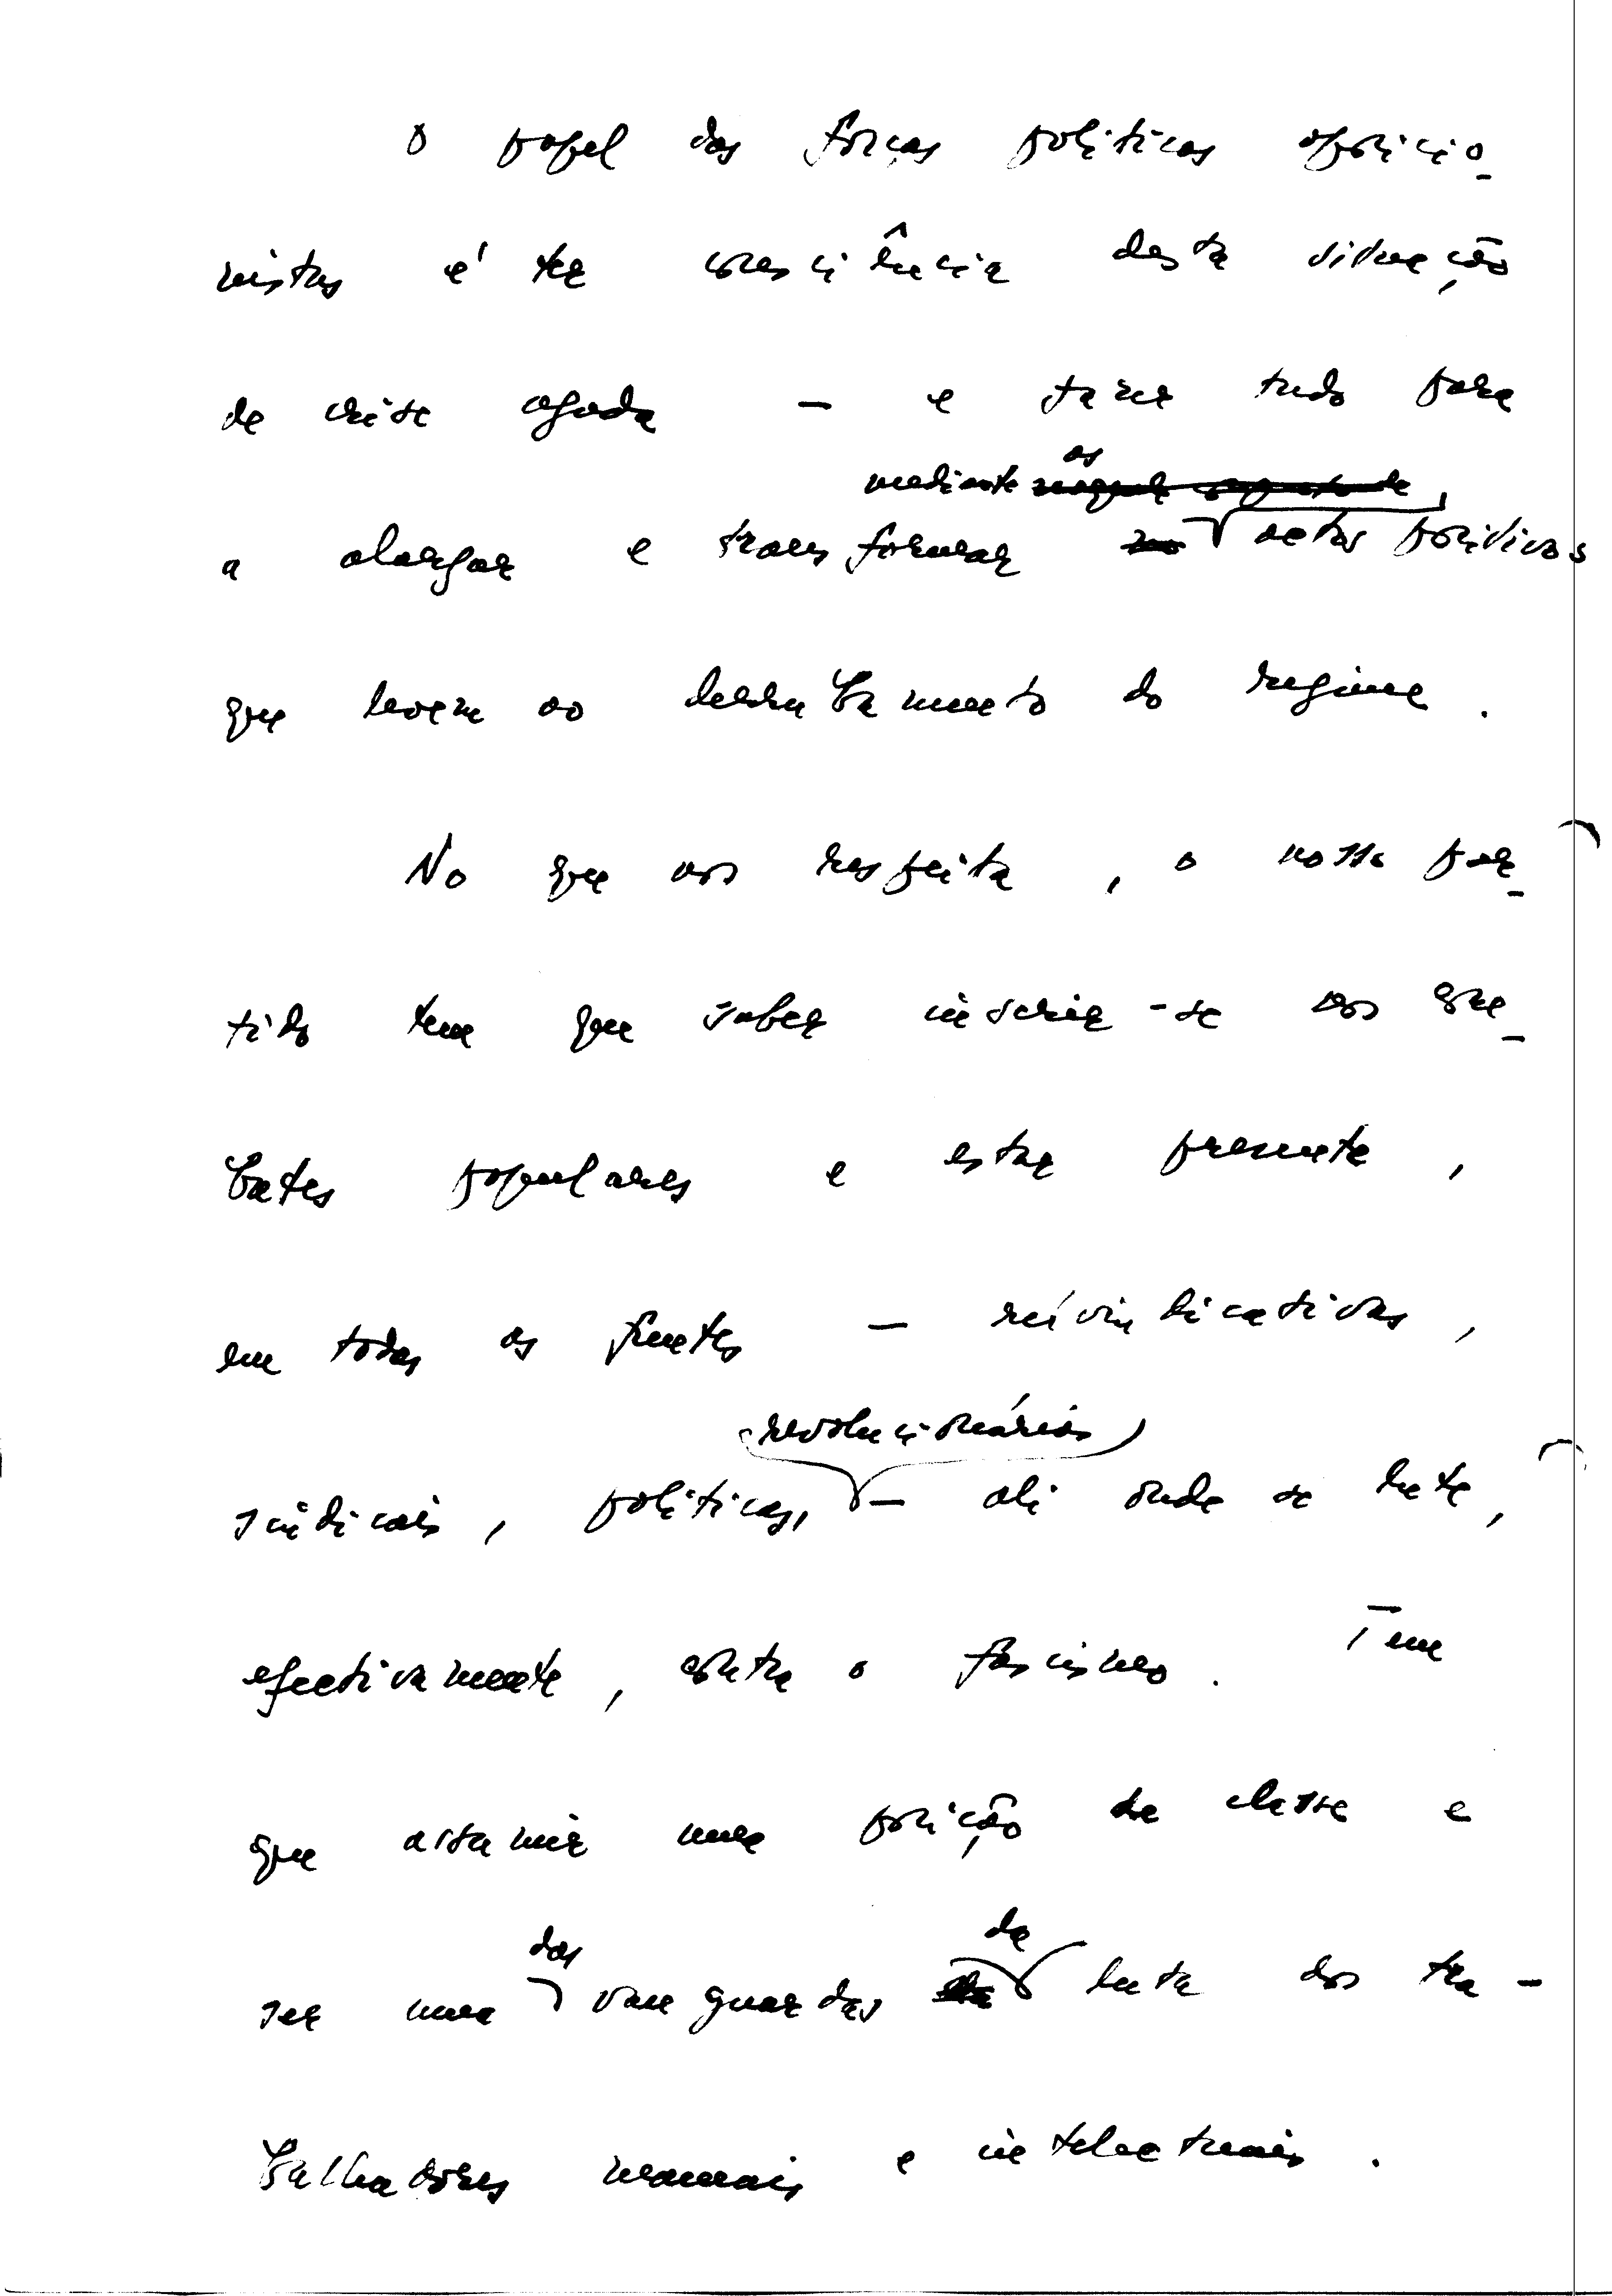 O papel das forças politicas oposicio-
nistas é ter consciência desta situação
de crise aguda — e fazer tudo para
mediante os
a alargar e transformar actos positivos
que levem ao derrubamento do regime.
No que nos respeita, o nosso par-
tido tem que saber inserir-se nos com-
bates populares e estar presente,
em todas as frentes — reivindicativas,
revolucionárias
sindicais, politicas, — ali onde se lute,
efectivamente, contra o fascismo. Tem
que assumir uma posição de classe e
das da
ser uma vanguardas luta dos tra-
balhadores manuais e intelectuais.